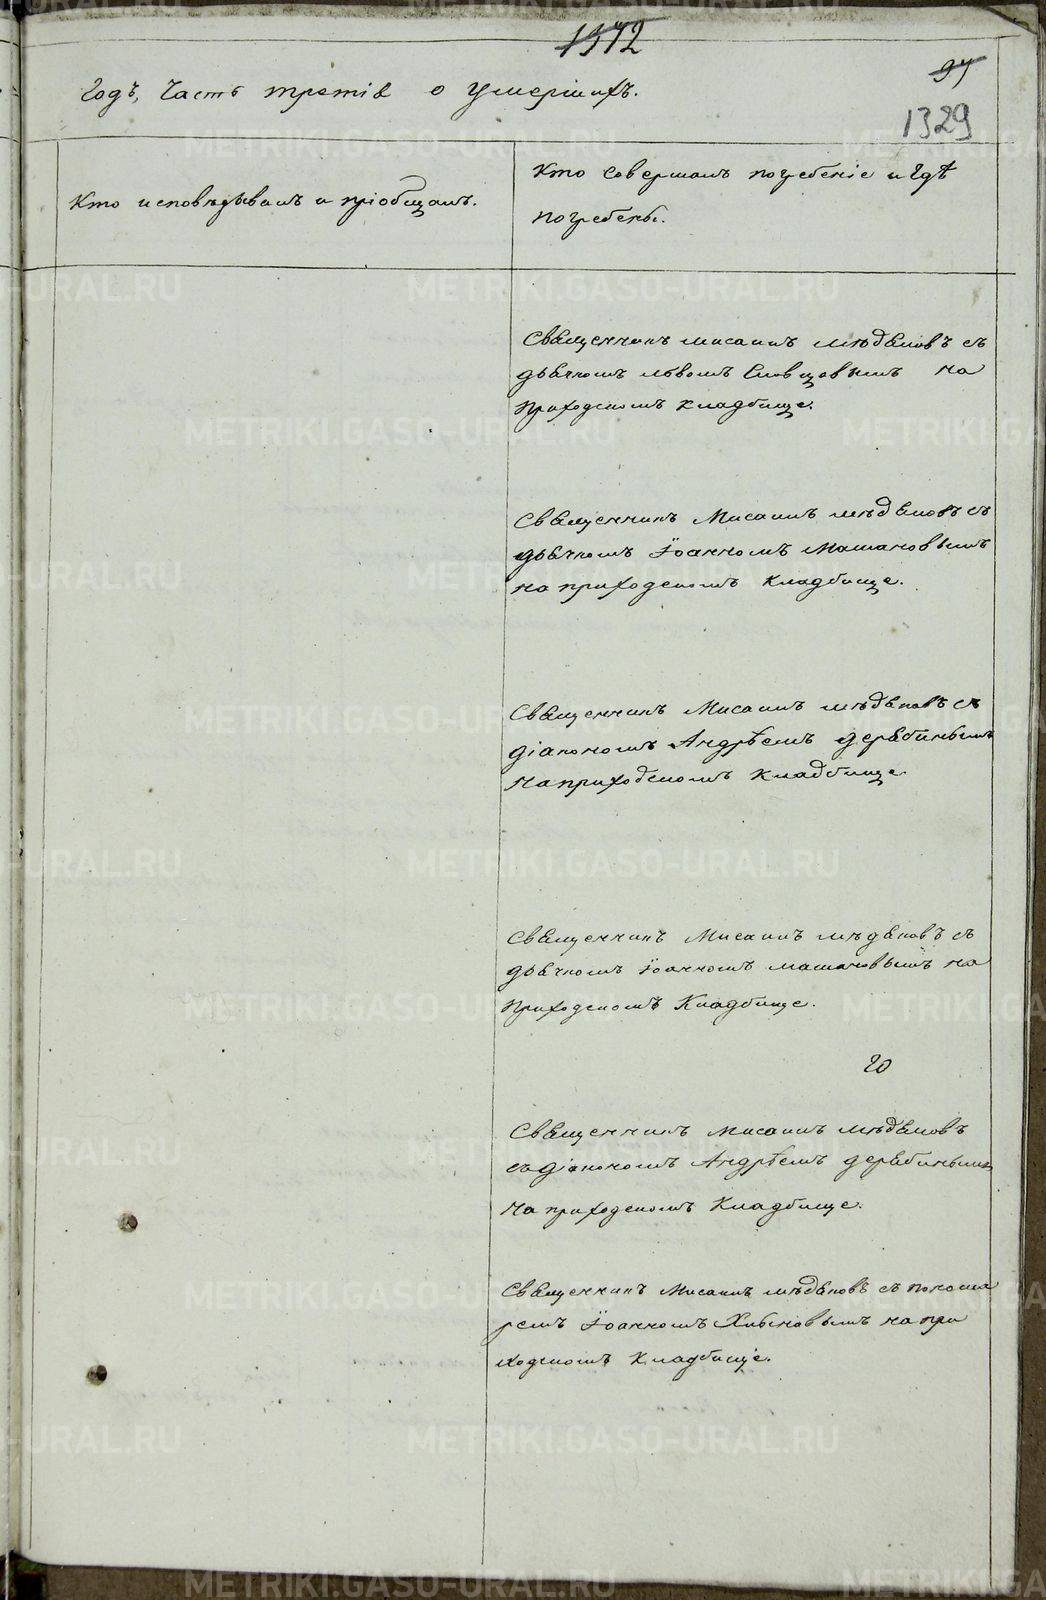 1372
97
1329
Годъ, Часть третія о умершихъ.
Кто исповѣдывалъ и пріобщалъ.
Кто совершалъ погребеніе и гдѣ
погребены.
Священникъ Мисаилъ Мѣдяковъ съ
дьячкомъ Львомъ Словцовымъ на
приходскомъ кладбище.
Священникъ Мисаилъ Мѣдяковъ съ
дьячкомъ Іоанномъ Машановымъ
на приходскомъ кладбище.
Священникъ Мисаилъ Мѣдяковъ съ
діакономъ Андрѣемъ Дерябинымъ
на приходскомъ кладбище.
Священникъ Мисаилъ Мѣдяковъ съ
дьячкомъ Іоанномъ Машановымъ на
приходскомъ кладбище.
20
Священникъ Мисаилъ Мѣдяковъ
съ діакономъ Андрѣемъ Дерябинымъ
на приходскомъ кладбище.
Священникъ Мисаилъ Мѣдяковъ съ понома
ремъ Іоанномъ на при
ходскомъ кладбище.
METRIKI.GASO-URAL.RU